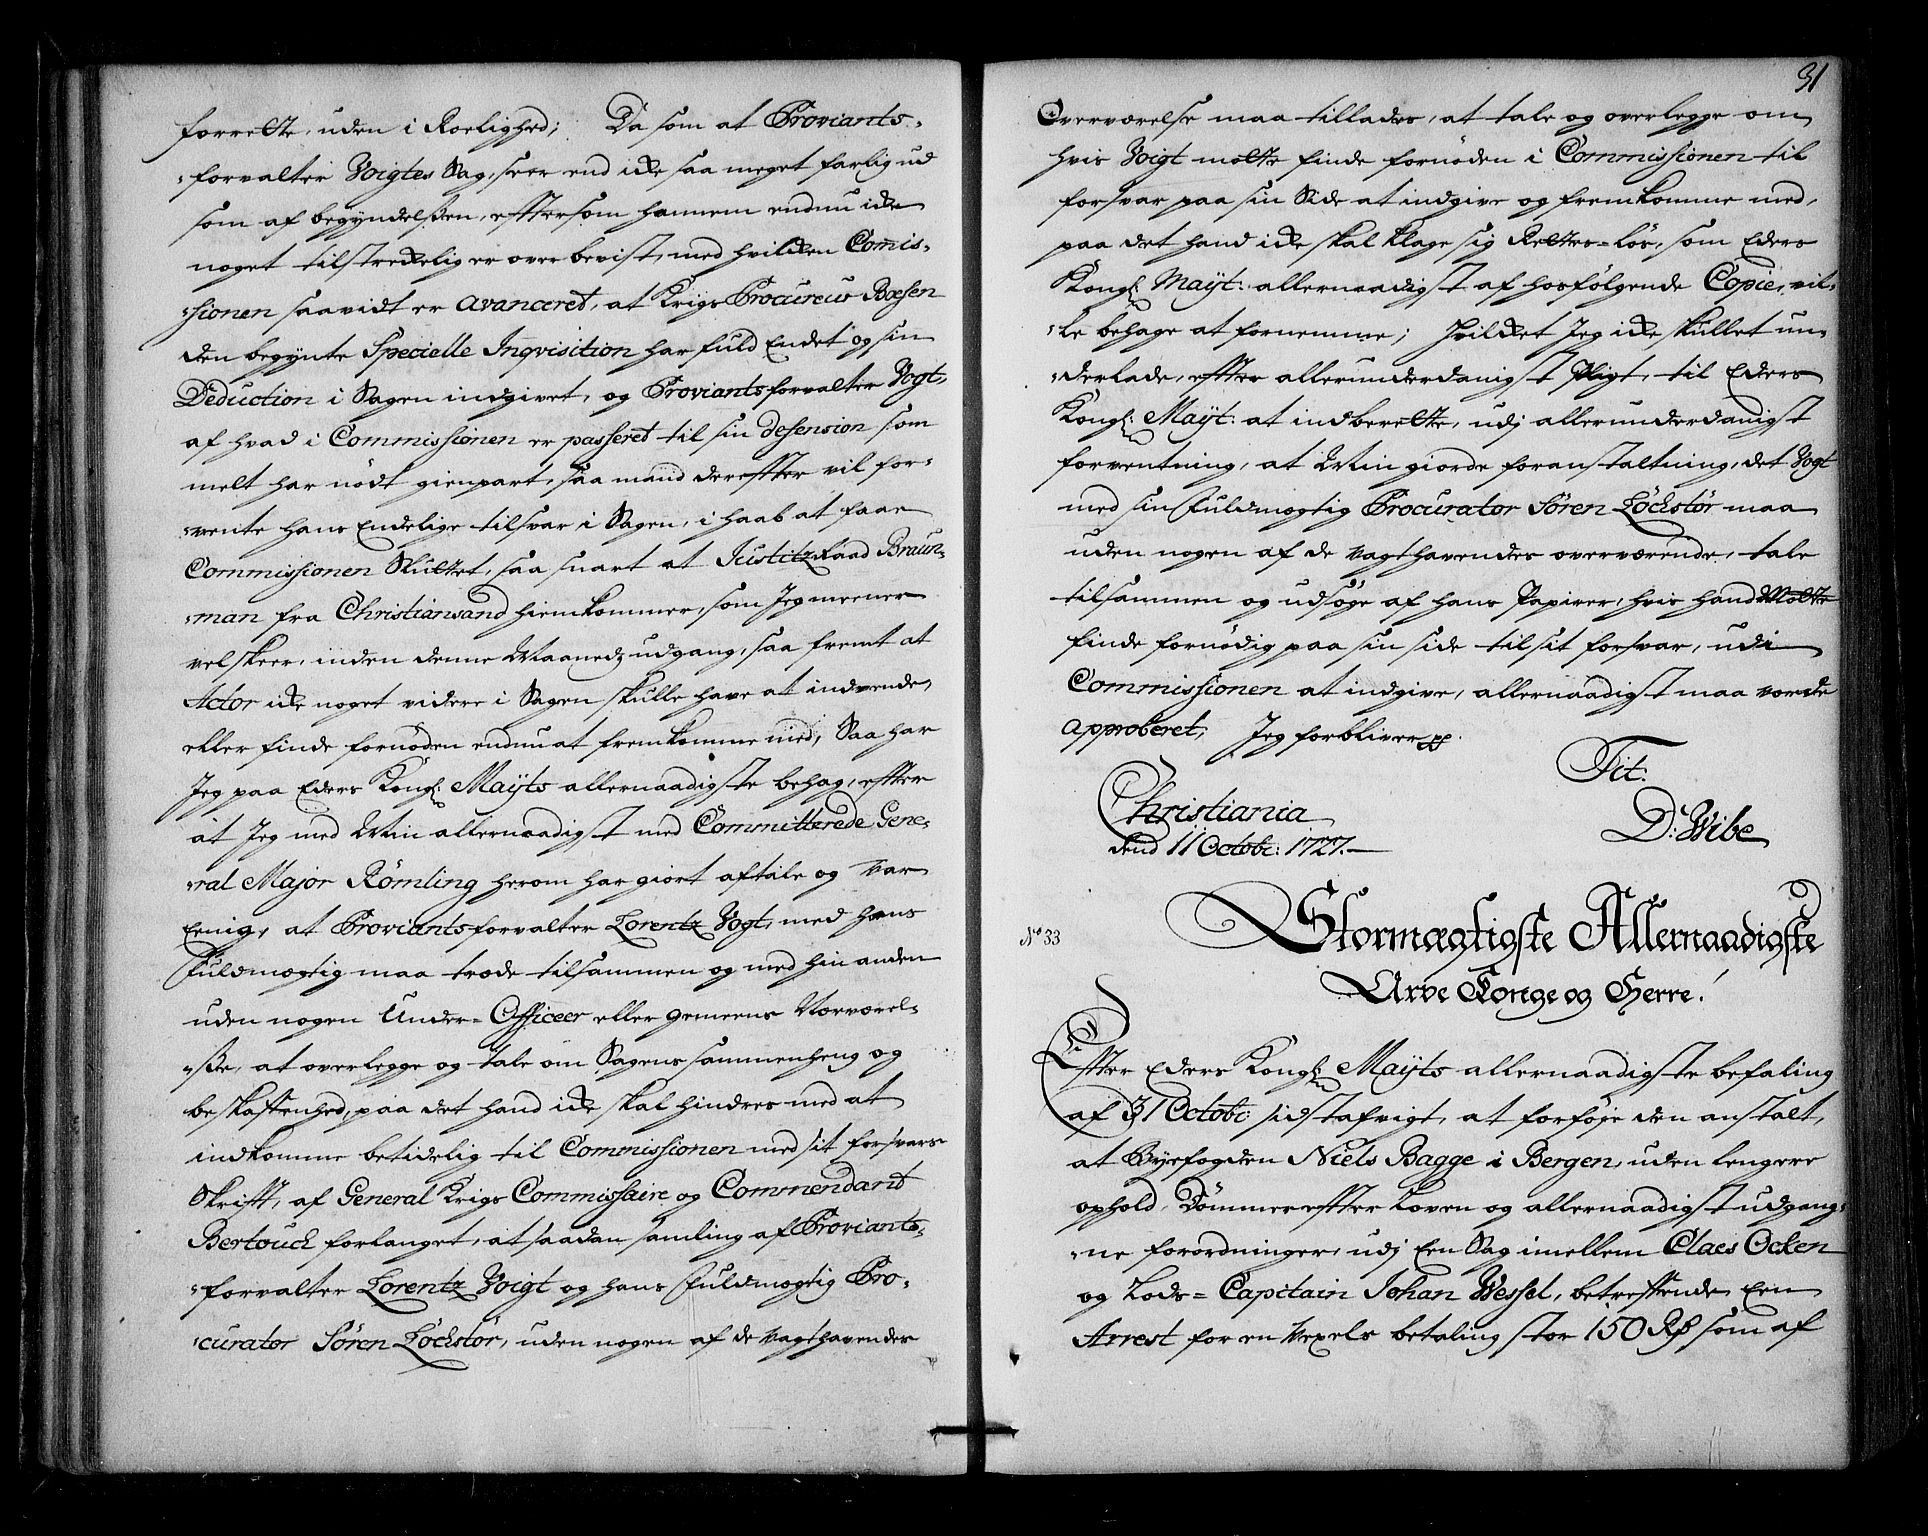 forrette, uden i Roelighed; Da som at Proviants-
-forvalter Voigtes Sag, seer end icke saa meget farlig ud
som af begyndelsen, eftersom hannem endnu icke
noget tilstreckelig er overbevist, med hvilcken Comis-
-sionen saavidt er avanceret, at Krigs Procureur Boesen
den begynte Specielle Inqvisition har fuld Endet og sin
Deduction i Sagen indgivet, og Proviantsforvalter Vogt,
af hvad i Commissionen er passeret til sin defension som
melt har nødt gienpart, saa mand derefter vil for-
-vente hans Endelige tilsvar i Sagen, i haab at faae
Commissionen Sluttet, saa snart at JustitzRaad Braun-
-man fra Christiansand hiemkommer, som Jeg meener
vel skeer, inden denne Maanedz udgang, saa fremt at
Actor icke noget videre i Sagen skulle have at indvende,
eller finde fornøden endnu at fremkomme med; Saa har
Jeg paa Eders Kongl: Mayts allernaadigste behag, efter
at Jeg med Min allernaadigst med Committerede Gene-
-ral Major Rømling herom har giort aftale og var
Eenig, at Proviantsforvalter Lorentz Vogt, med hans
Fuldmægtig maa træde tilsammen og med hin anden
uden nogen Under-Officeer eller gemeens Nærværel-
-ße, at overlegge og tale om Sagens sammenheng og
beskaffenhed, paa det hand icke skal hindres med at
indkomme betidelig til Commissionen med sit forsvars
Skrift, af General Krigs Commissaire og Commendant
Bertouch forlanget, at saadan samling af Proviants-
-forvalter Lorentz Voigt og hans Fuldmægtig Pro-
-curator Søren Løchstør, uden nogen af de vagthavendes

31
Overværelse maa tillades, at tale og overlegge om
hvis Voigt motte finde fornøden i Commissionen til
forsvar paa sin Side at indgive og fremkomme med,
paa det hand icke skal klage sig Rettes-løs, som Eders
Kongl: Mayt: allernaadigst af hosfølgende Copie, vil-
-le behage at fornemme; Hvilcket Jeg icke skullet un-
-derlade, efter allerunderdanigst Pligt, til Eders
Kongl: Mayt: at indberette, udj allerunderdanigst
forventning, at Min giorde foranstaltning, det Vogt
med sin Fuldmægtig Procurator Søren Løchstør maa
uden nogen af de vagthavendes overværende, tale
tilsammen og udsøge af hans Papirer, hvis hand Motte
finde fornødig paa sin side til sit forsvar, udi
Commissionen at indgive, allernaadigst maa vorde
approberet; Jeg forbliver pp.
Tit:
Christiania
D: Wibe
dend 11 Octobr: 1727.
No 33
Stormægtigste Allernaadigste
Arve Konge og Herre!
Efter Eders Kongl: Mayts allernaadigste befaling
af 31 Octobr: sidstafvigt, at forføje den anstalt,
at Byefogden Niels Bagge i Bergen, uden lengere
ophold, Dømmer efter Loven og allernaadigst udgang-
-ne forordninger, udj Een Sag imellem Claes Ocken
og Lods-Capitain Johan Wessel, betreffende Een
Arrest for en Vexels betaling stor 150 Rd som af